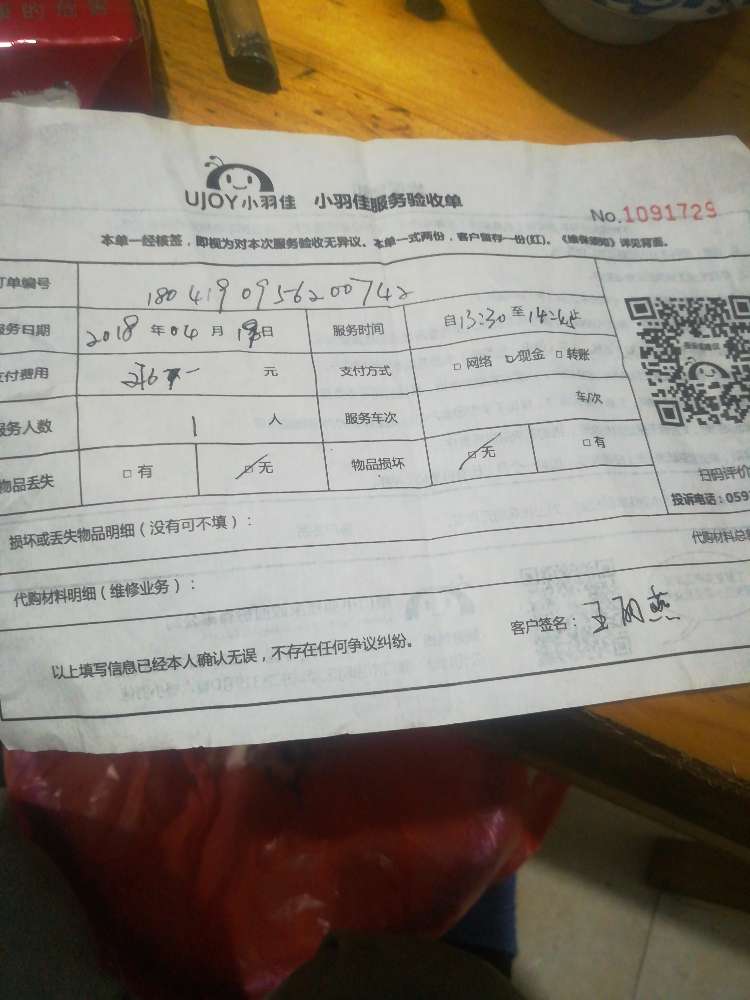 UJOY小羽佳 小羽佳服务验收单
No.1091729
本单一经核签，即视为对本次服务验收无异议。本单一式两份，客户留存一份(红)。《维保须知》详见背面。
订单编号 1804190956200742
服务日期 2018 年 04 月 19 日 服务时间 自 13:30 至
支付费用 元 支付方式 □ 网络 ☑ 现金 □ 转账
服务人数 1 人 服务车次 车/次
物品丢失 □ 有 ☑ 无 物品损坏 ☑ 无 □ 有
扫码评价
投诉电话：059
损坏或丢失物品明细（没有可不填）：
代购材料总
代购材料明细（维修业务）：
客户签名：
以上填写信息已经本人确认无误，不存在任何争议纠纷。